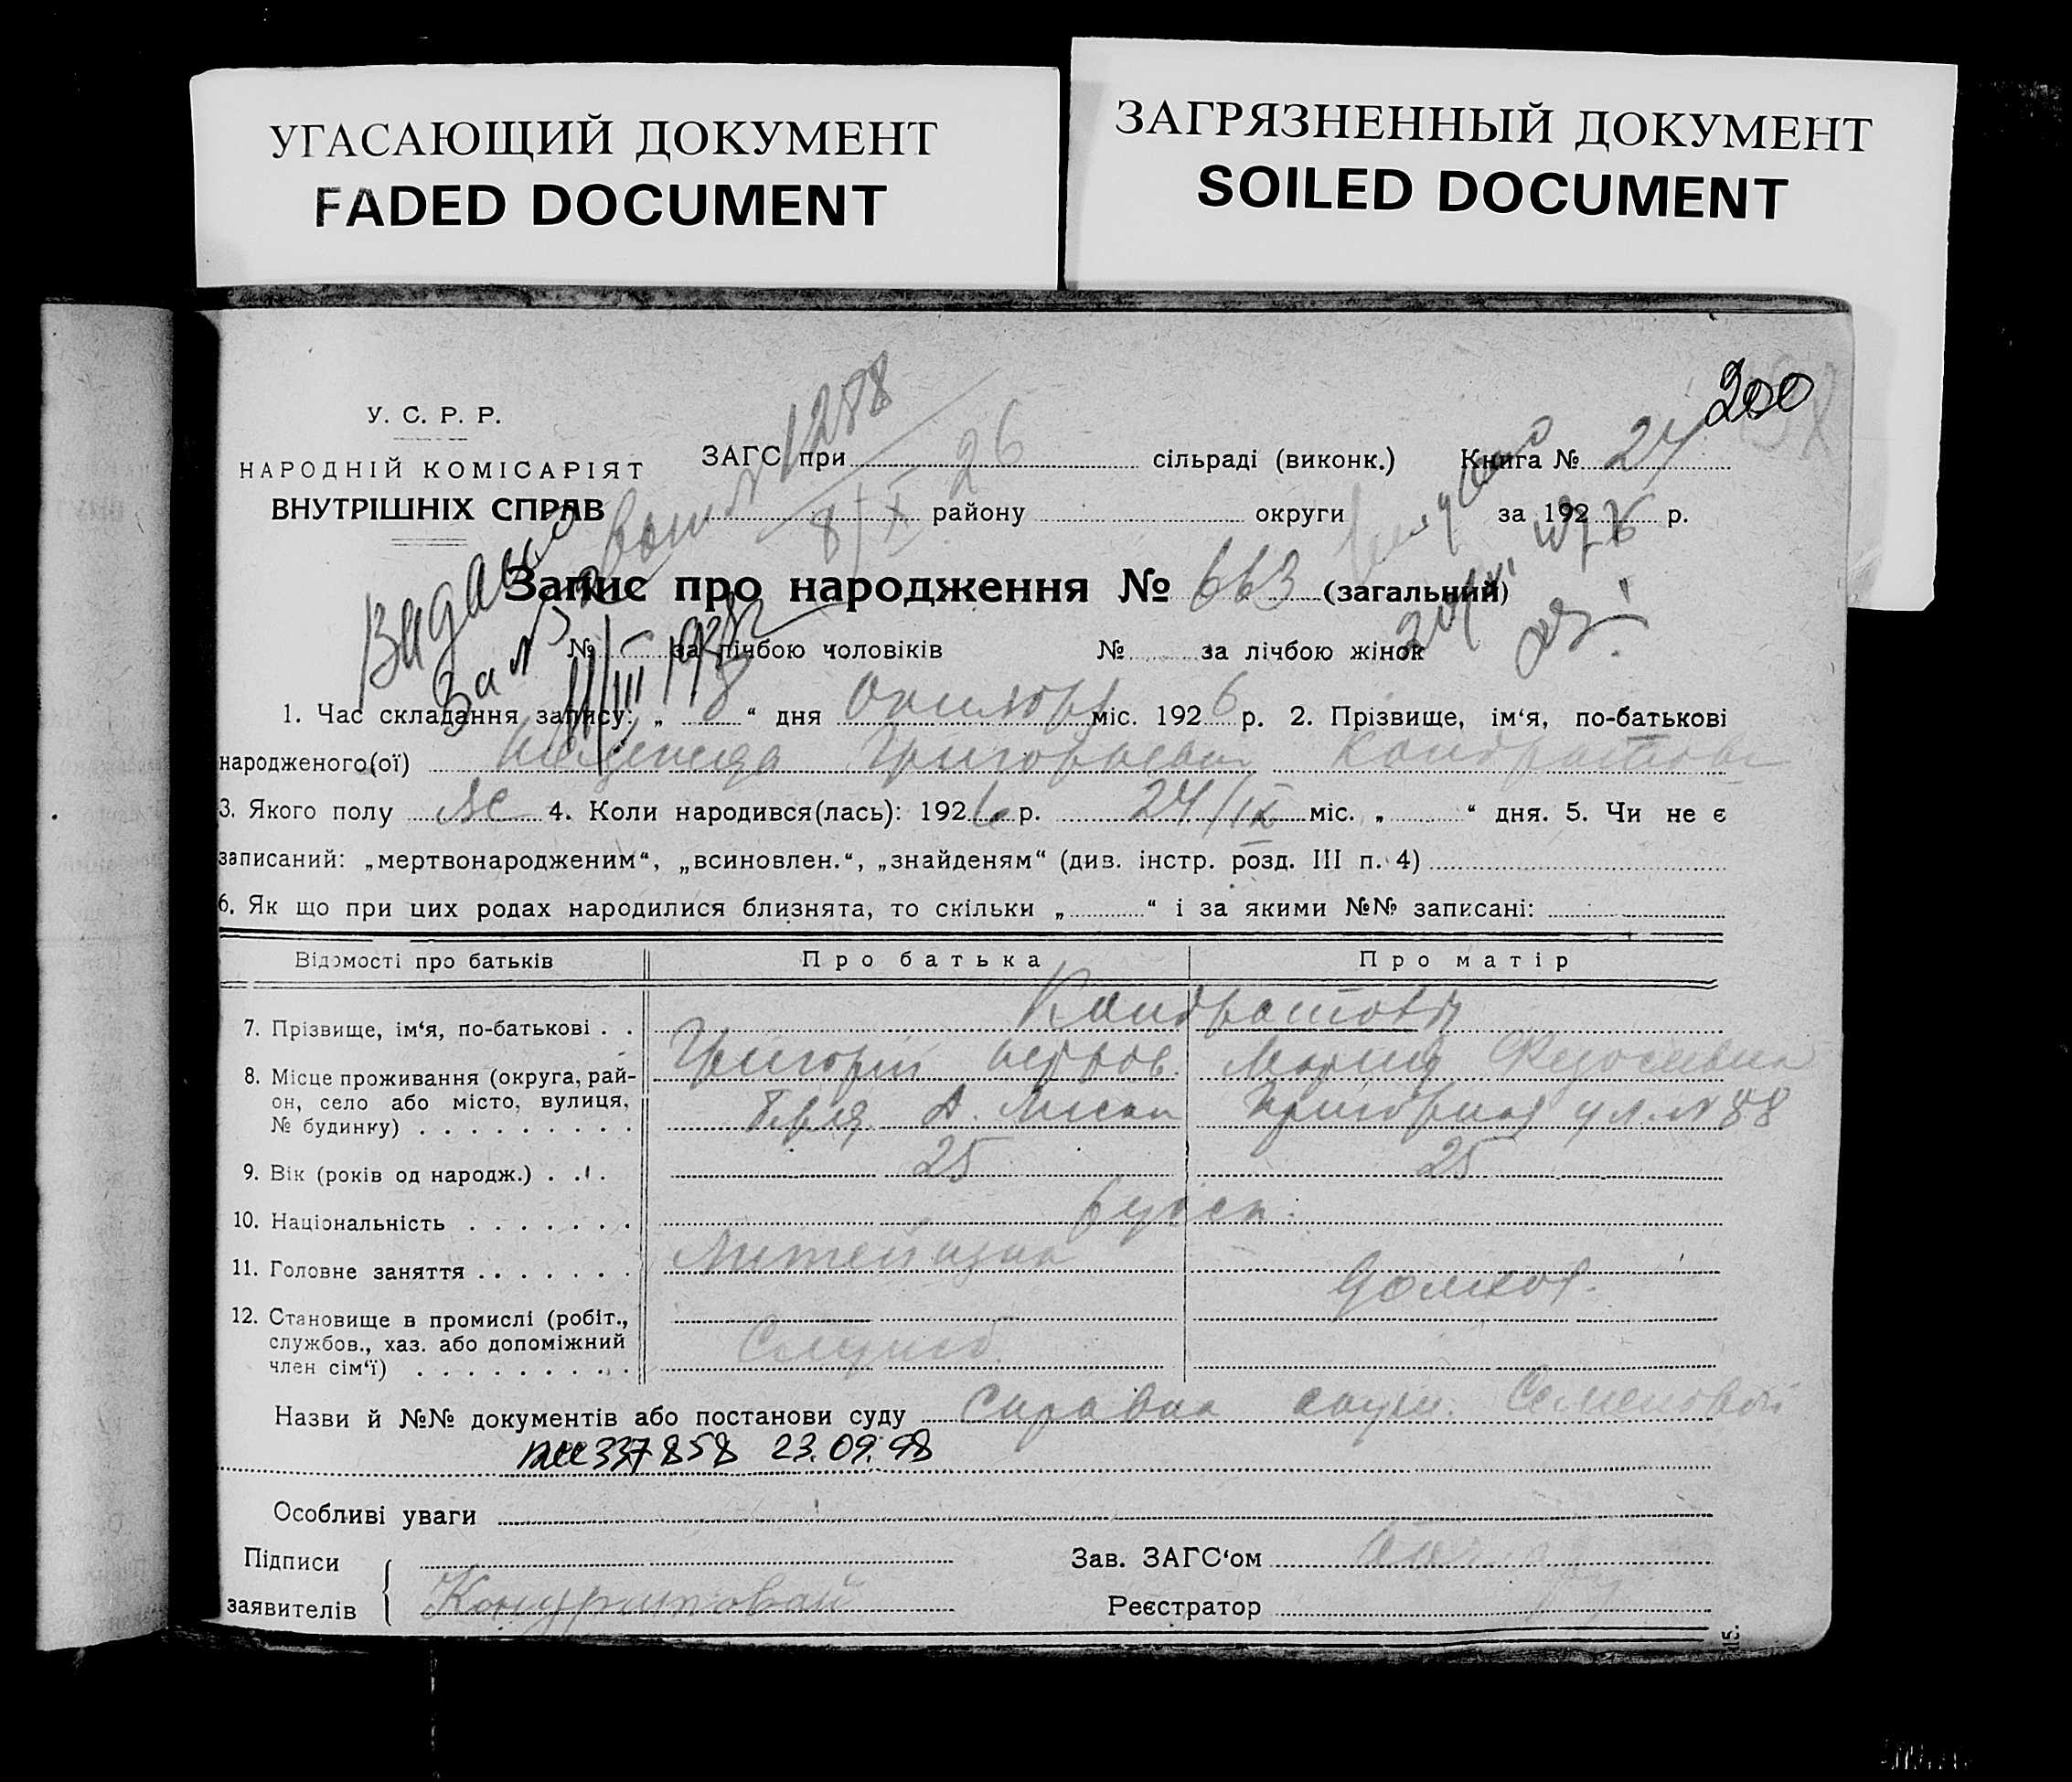 УГАСАЮЩИЙ ДОКУМЕНТ
FADED DOCUMENT
ЗАГРЯЗНЕННЫЙ ДОКУМЕНТ
SOILED DOCUMENT
200
У. С. Р. Р.
НАРОДНІЙ КОМІСАРІЯТ
ВНУТРІШНІХ СПРАВ
1288
ЗАГС при сільраді (виконк.) Книга № 24
8/X 26
району округи за 192 6 р.
Видано
Запис про народження № 663 (загальний)
№ за лічбою чоловіків № за лічбою жінок
1. Час складання запису: „ 8 “ дня Октября міс. 192 6 р. 2. Прізвище, ім‘я, по-батькові
народженого(ої) Григорьевна Кондратова
3. Якого полу ж 4. Коли народився(лась): 192 6 р. 24/IX міс. „ “ дня. 5. Чи не є
записаний: „мертвонародженим“, „всиновлен.“, „знайденям“ (див. інстр. розд. III п. 4)
6. Як що при цих родах народилися близнята, то скільки „ “ і за якими №№ записані:
Відомості про батьків Про батька Про матір
Кондратовы
7. Прізвище, ім‘я, по-батькові . .
Григорий Мария Федосеевна
8. Місце проживання (округа, рай-
он, село або місто, вулиця,
№ будинку) . . . . . . . . . ул. № 88
9. Вік (років од народж.) . . . 25 25
10. Національність . . . . . . . русск.
11. Головне заняття . . . . . . . Литейщик домхоз.
12. Становище в промислі (робіт.,
службов., хаз. або допоміжний
член сім‘ї) . . . . . . . . . Служб.
Назви й №№ документів або постанови суду Справка Семеновой
337858 23.09.98
Особливі уваги
Підписи Зав. ЗАГС‘ом
заявителів Кондратовой Реєстратор